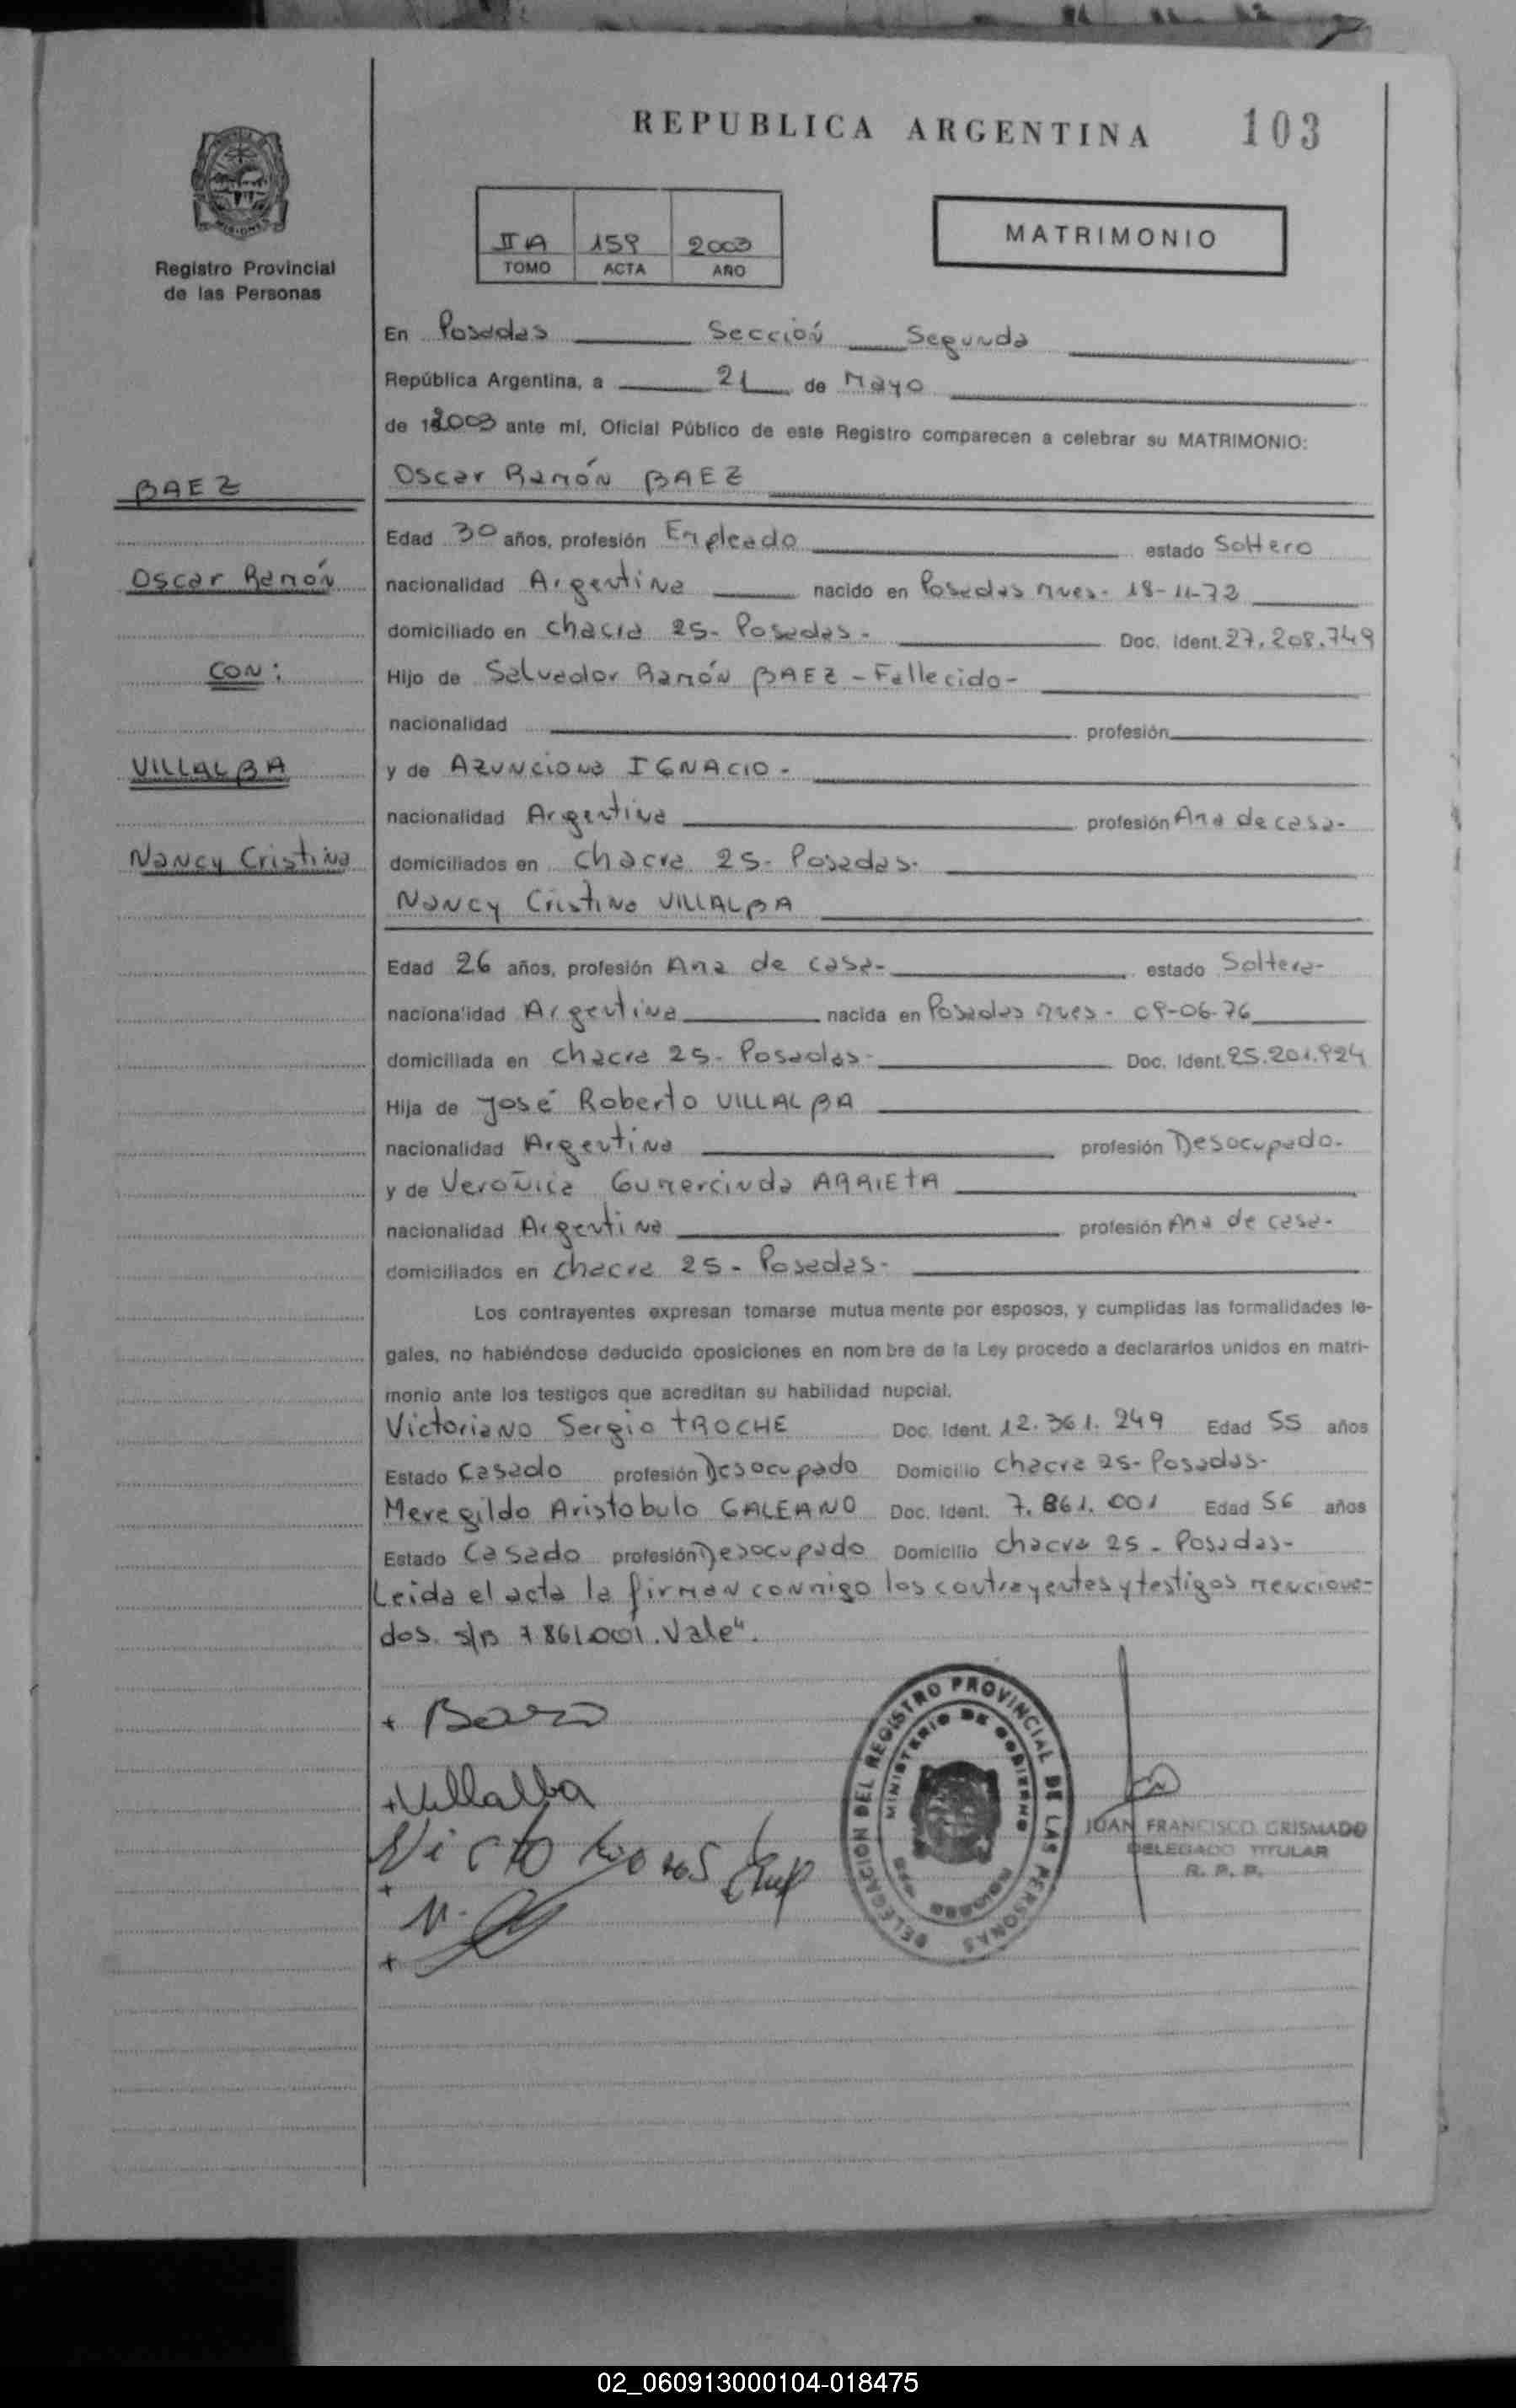 REPUBLICA ARGENTINA 103
Registro Provincial
de las Personas
IIA 159 2003
TOMO ACTA AÑO
MATRIMONIO
En Posadas Sección Segunda
República Argentina, a 21 de Mayo
de 2003 ante mí, Oficial Público de este Registro comparecen a celebrar su MATRIMONIO:
BAEZ
Oscar Ramón
CON:
VILLALBA
Nancy Cristina
Oscar Ramón BAEZ
Edad 30 años, profesión Empleado estado Soltero
nacionalidad Argentina nacido en Posadas Mnes- 18-11-72
domiciliado en Chacra 25- Posadas- Doc. Ident. 27.208.749
Hijo de Salvador Ramón BAEZ - Fallecido-
nacionalidad profesión
y de AZUNCIONA IGNACIO-
nacionalidad Argentina profesión Ama de casa-
domiciliados en Chacra 25- Posadas-
Nancy Cristina VILLALBA
Edad 26 años, profesión Ama de casa- estado Soltera-
nacionalidad Argentina nacida en Posadas Mnes- 09-06-76
domiciliada en Chacra 25- Posadas- Doc. Ident. 25.201.924
Hija de José Roberto VILLALBA
nacionalidad Argentina profesión Desocupado-
y de Veronica Gumercinda ARRIETA
nacionalidad Argentina profesión Ama de casa-
domiciliados en Chacra 25- Posadas-
Los contrayentes expresan tomarse mutua mente por esposos, y cumplidas las formalidades le-
gales, no habiéndose deducido oposiciones en nom bre de la Ley procedo a declararlos unidos en matri-
monio ante los testigos que acreditan su habilidad nupcial.
Victoriano Sergio TROCHE Doc. Ident. 12.361.249 Edad 55 años
Estado Casado profesión Desocupado Domicilio Chacra 25- Posadas-
Meregildo Aristobulo GALEANO Doc. Ident. 7.861.001 Edad 56 años
Estado Casado profesión Desocupado Domicilio Chacra 25- Posadas-
Leida el acta la firman conmigo los contrayentes y testigos menciona-
dos. s/B 7861.001. Vale".
+ Baez
+ Villalba
DELEGACION DEL REGISTRO PROVINCIAL DE LAS PERSONAS
MINISTERIO DE GOBIERNO
JUAN FRANCISCO GRISMADO
DELEGADO TITULAR
R. P. P.
02_060913000104-018475